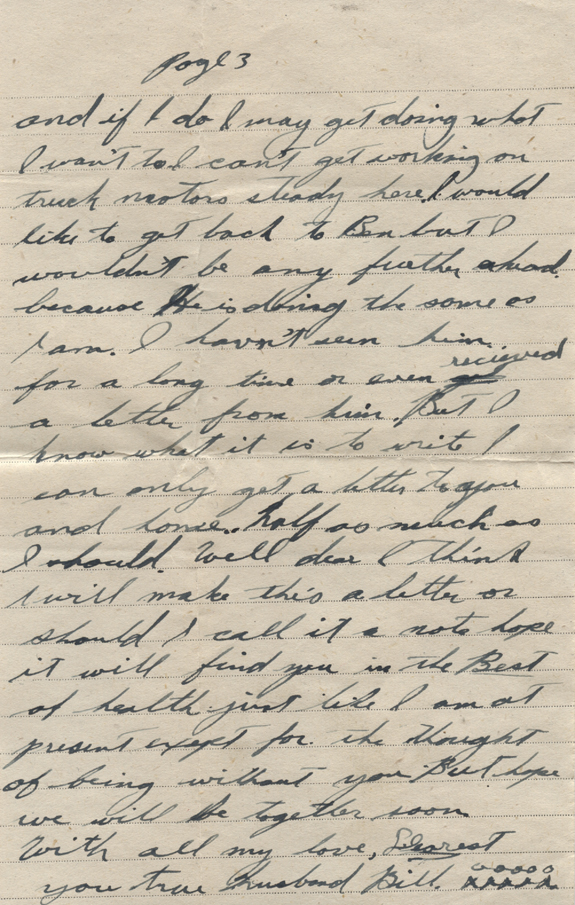 Page 3
and if I do I may get doing what
I wan't to I can't get working on
truck motors steady here. I would
like to get back to Ben but I
wouldn't be any further ahead.
because He is doing the same as
I am. I havn't seen him
for a long time or even recieved
a letter from him. But I
know what it is to write I
can only get a letter to you
and home. half as much as
I should. Well dear I think
I will make this a letter or
should I call it a note hope
it will find you in the Best
of health just like I am at
present exept for the thought
of being without you But hope
we will be together soon
With all my love, Dearest
you true husband Bill. ooooo
xxxxx